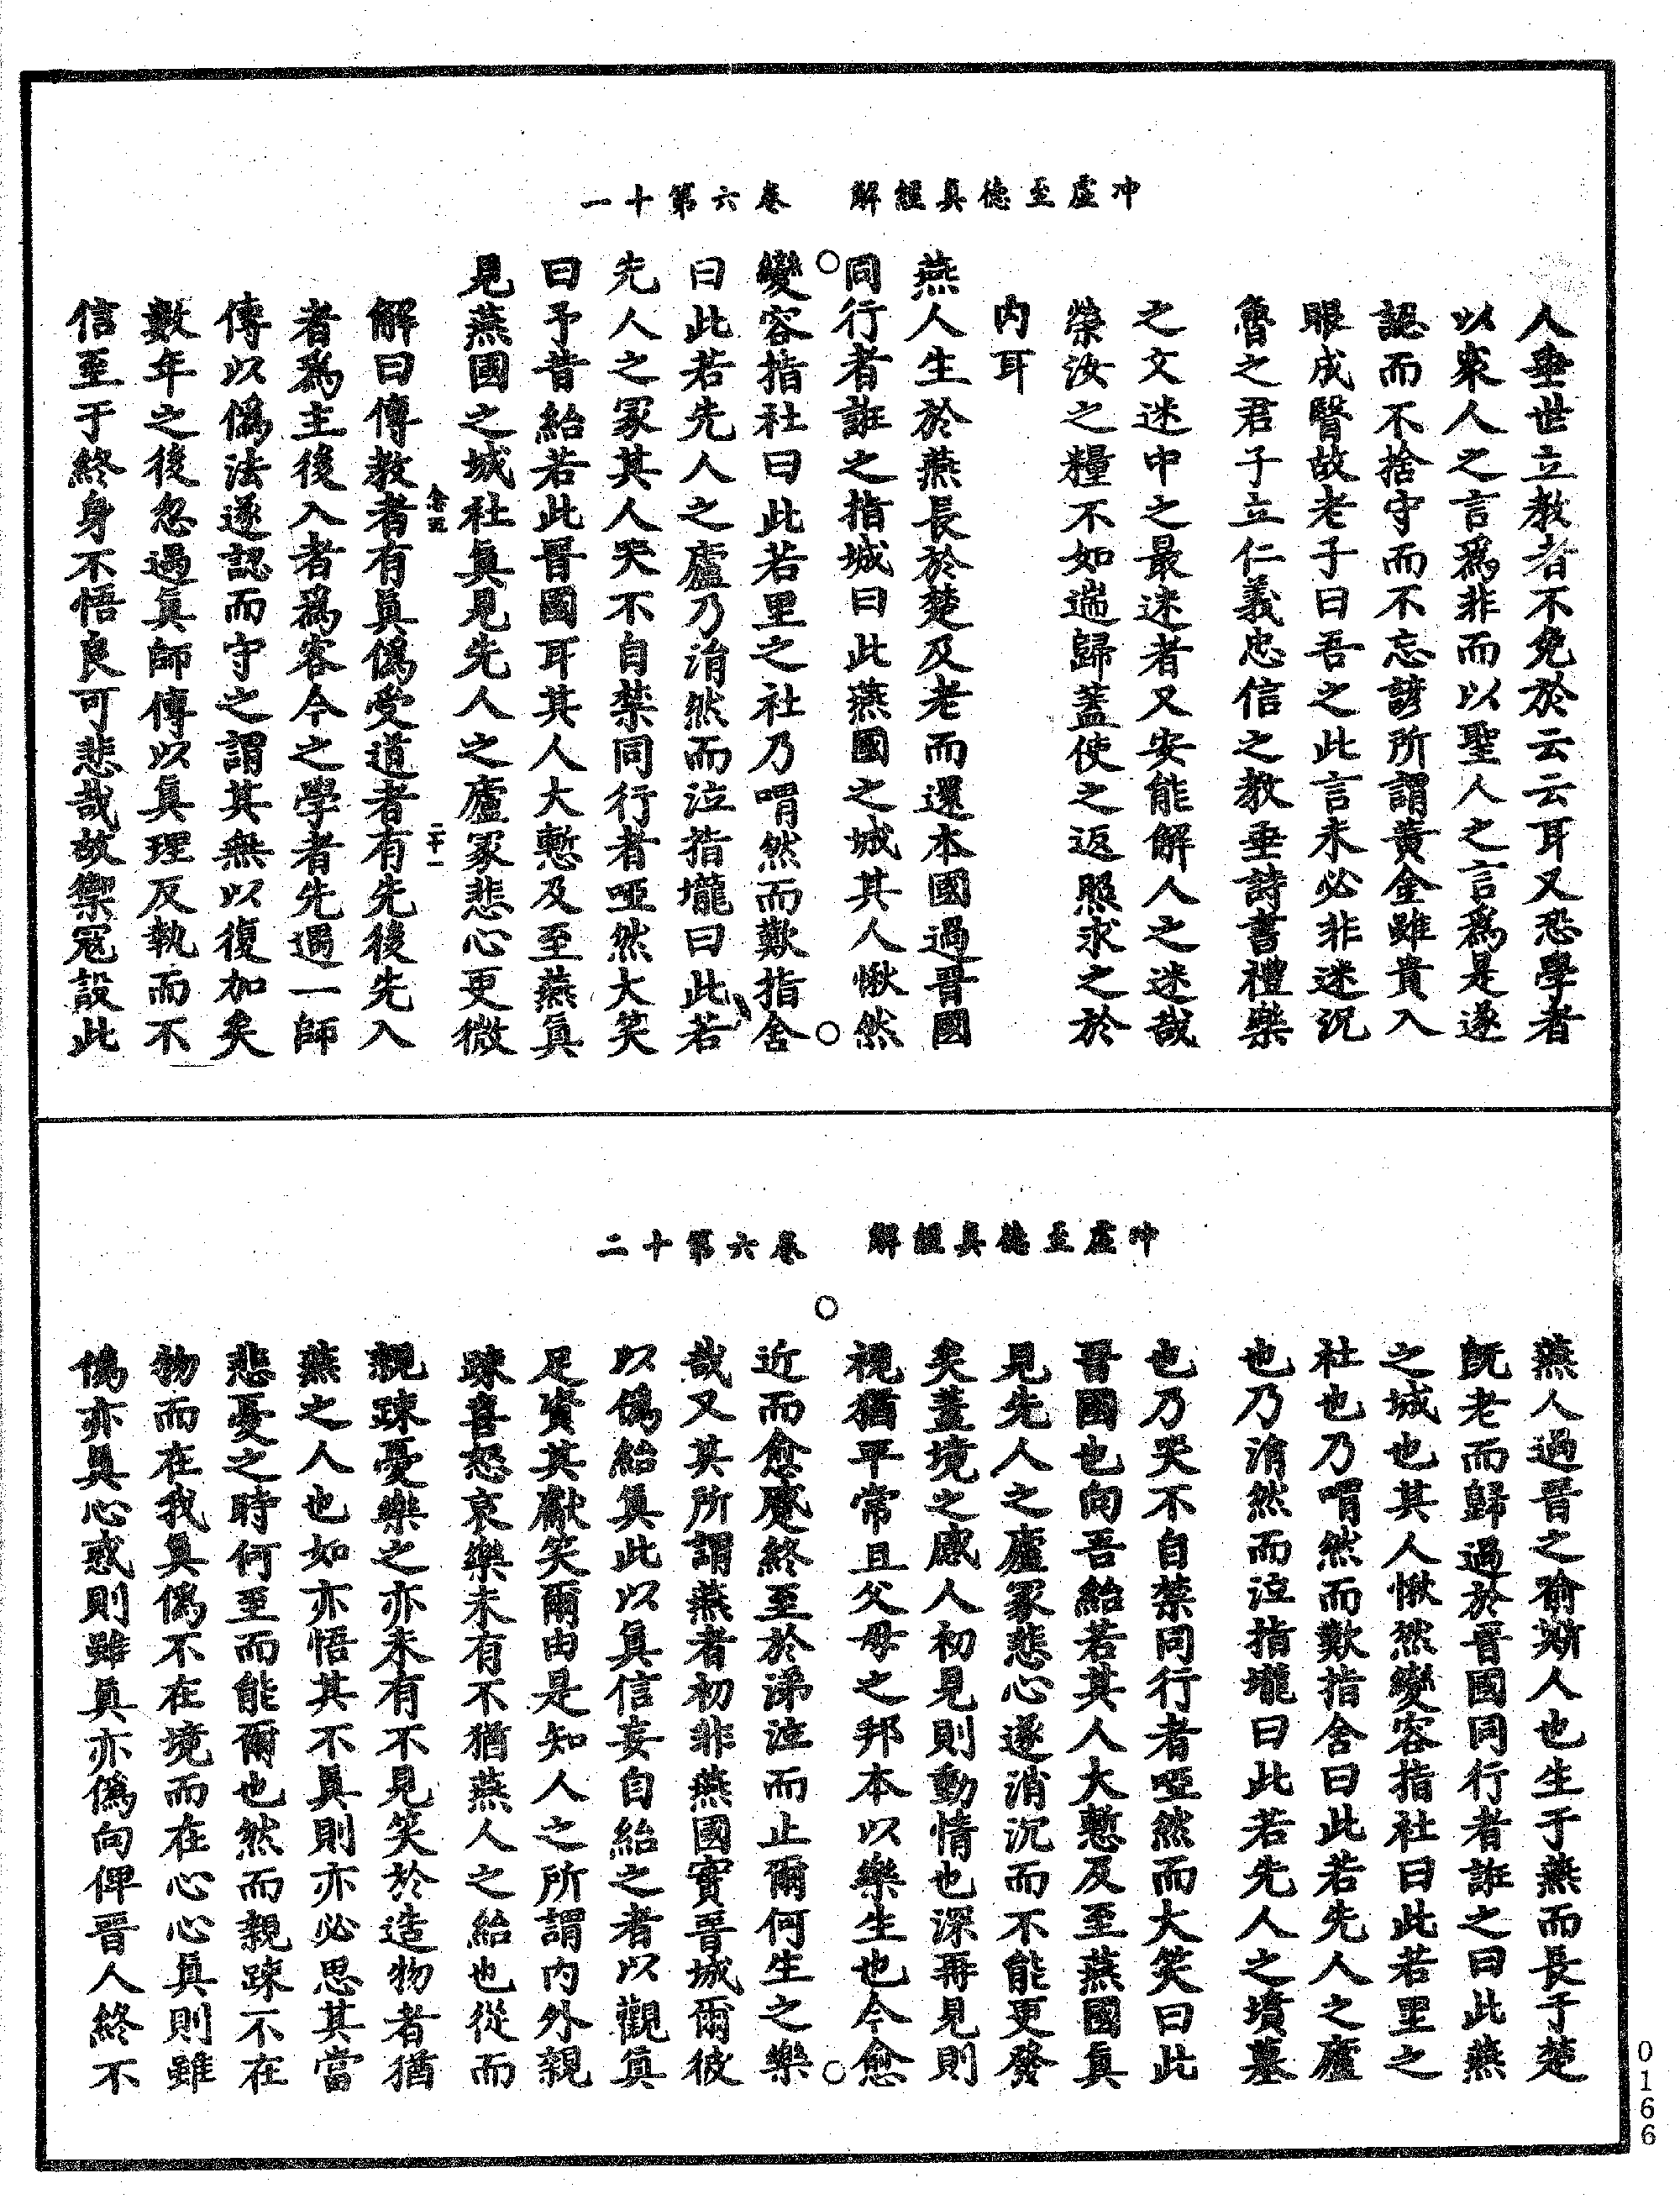 冲虛至德真經解　卷六第十一
人垂世立教者不免於云云耳又恐學者
以衆人之言爲非而以聖人之言爲是遂
認而不捨守而不忘諺所謂黃金雖貴入
眼成瞖故老子曰吾之此言未必非迷況
魯之君子立仁義忠信之教垂詩書禮樂
之文迷中之最迷者又安能解人之迷哉
榮汝之糧不如遄歸蓋使之返照求之於
内耳
燕人生於燕長於楚及老而還本國過晋國
同行者誑之指城曰此燕國之城其人愀然
變容指社曰此若里之社乃喟然而歎指舍
曰此若先人之廬乃涓然而泣指壠曰此若
先人之冢其人哭不自禁同行者啞然大笑
曰予昔紿若此晋國耳其人大慙及至燕真
見燕國之城社真見先人之廬冢悲心更微
解曰傳教者有真僞受道者有先後先入
者爲主後入者爲客今之學者先遇一師
傳以僞法遂認而守之謂其無以復加矣
數年之後忽過真師傳以真理反執而不
信至于終身不悟良可悲哉故禦冦設此
冲虛至德真經解　卷六第十二
燕人過晋之喻斯人也生于燕而長于楚
旣老而歸過於晋國同行者誑之曰此燕
之城也其人愀然變容指社曰此若里之
社也乃喟然而歎指舍曰此若先人之廬
也乃涓然而泣指壠曰此若先人之墳墓
也乃哭不自禁同行者啞然而大笑曰此
晋國也向吾紿若其人大慙及至燕國真
見先人之廬冢悲心遂消沉而不能更發
矣蓋境之感人初見則動情也深再見則
視猶平常且父母之邦本以樂生也今愈
近而愈慼終至於涕泣而止爾何生之樂
哉又其所謂燕者初非燕國實晋城爾彼
以僞紿真此以真信妄自紿之者以觀真
足資其獻笑爾由是知人之所謂内外親
踈喜怒哀樂未有不猶燕人之紿也從而
親踈憂樂之亦未有不見笑於造物者猶
燕之人也如亦悟其不真則亦必思其當
悲憂之時何至而能爾也然而親踈不在
物而在我真僞不在境而在心心真則雖
僞亦真心惑則雖真亦僞向俾晋人終不
0166